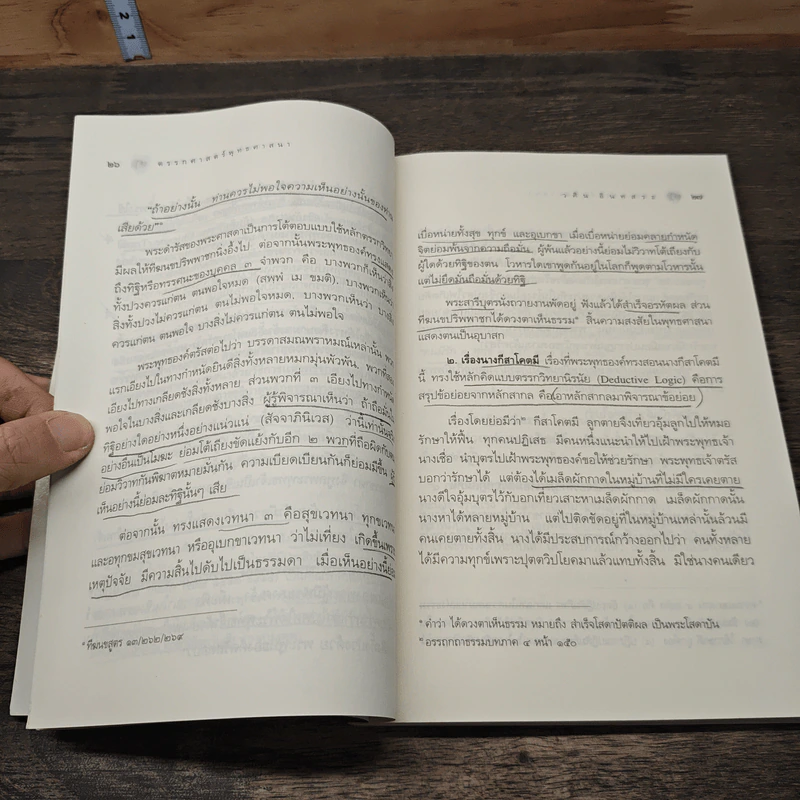 2
1
๒๖
ตรรกศาสตร์พุทธศาสนา
"ถ้าอย่างนั้น ท่านควรไม่พอใจความเห็นอย่างนั้นของท่าน
เสียด้วย"
พระดำรัสของพระศาสดาเป็นการโต้ตอบแบบใช้หลักตรรกวิทยา
มีผลให้ทีฆนขปริพพาชกนิ่งอึ้งไป ต่อจากนั้นพระพุทธองค์ทรงแสดง
ถึงทิฐิหรือทรรศนะของบุคคล ๓ จำพวก คือ บางพวกก็เห็นว่าสิ่ง
ทั้งปวงควรแก่ตน ตนพอใจหมด (สพฺพํ เม ขมติ), บางพวกเห็นว่า
สิ่งทั้งปวงไม่ควรแก่ตน ตนไม่พอใจหมด, บางพวกเห็นว่า บางสิ่ง
ควรแก่ตน ตนพอใจ บางสิ่งไม่ควรแก่ตน ตนไม่พอใจ
พระพุทธองค์ตรัสต่อไปว่า บรรดาสมณพราหมณ์เหล่านั้น พวก
แรกเอียงไปในทางกำหนัดยินดีสิ่งทั้งหลายหมกมุ่นพัวพัน, พวกที่สอง
เอียงไปทางเกลียดชังสิ่งทั้งหลาย ส่วนพวกที่ ๓ เอียงไปทางกำหนัด
พอใจในบางสิ่งและเกลียดชังบางสิ่ง ผู้รู้พิจารณาเห็นว่า ถ้าถือมั่นใน
ทิฐิอย่างใดอย่างหนึ่งอย่างแน่วแน่ (สัจจาภินิเวส) ว่านี้เท่านั้นจริง
อย่างอื่นเป็นโมฆะ ย่อมโต้เถียงขัดแย้งกับอีก ๒ พวกที่ถือผิดกับตน
ย่อมวิวาทกันพิฆาตหมายมั่นกัน ความเบียดเบียนกันก็ย่อมมีขึ้น ผู้
เห็นอย่างนี้ย่อมละทิฐินั้นๆ เสีย
ต่อจากนั้น ทรงแสดงเวทนา ๓ คือสุขเวทนา ทุกขเวทนา
และอทุกขมสุขเวทนา หรืออุเบกขาเวทนา ว่าไม่เที่ยง เกิดขึ้นเพราะ
เหตุปัจจัย มีความสิ้นไปดับไปเป็นธรรมดา เมื่อเห็นอย่างนี้ย่อม
ทีฆนขสูตร ๑๓/๒๖๒/๒๖๙
วศิน อินทสระ
๒๗
เบื่อหน่ายทั้งสุข ทุกข์ และอุเบกขา เมื่อเบื่อหน่ายย่อมคลายกำหนัด
จิตย่อมพ้นจากความถือมั่น, ผู้พ้นแล้วอย่างนี้ย่อมไม่วิวาทโต้เถียงกับ
ผู้ใดด้วยทิฐิของตน โวหารใดเขาพูดกันอยู่ในโลกก็พูดตามโวหารนั้น
แต่ไม่ยึดมั่นถือมั่นด้วยทิฐิ
พระสารีบุตรนั่งถวายงานพัดอยู่ ฟังแล้วได้สำเร็จอรหัตผล ส่วน
ทีฆนขปริพพาชกได้ดวงตาเห็นธรรม* สิ้นความสงสัยในพุทธศาสนา
แสดงตนเป็นอุบาสก
๒. เรื่องนางกีสาโคตมี เรื่องที่พระพุทธองค์ทรงสอนนางกีสาโคตมี
นี้ ทรงใช้หลักคิดแบบตรรกวิทยานิรนัย (Deductive Logic) คือการ
สรุปข้อย่อยจากหลักสากล คือ เอาหลักสากลมาพิจารณาข้อย่อย
เรื่องโดยย่อมีว่า กีสาโคตมี ลูกตายจึงเที่ยวอุ้มลูกไปให้หมอ
รักษาให้ฟื้น ทุกคนปฏิเสธ มีคนหนึ่งแนะนำให้ไปเฝ้าพระพุทธเจ้า
นางเชื่อ นำบุตรไปเฝ้าพระพุทธองค์ขอให้ช่วยรักษา พระพุทธเจ้าตรัส
บอกว่ารักษาได้ แต่ต้องได้เมล็ดผักกาดในหมู่บ้านที่ไม่มีใครเคยตาย
นางดีใจอุ้มบุตรไว้กับอกเที่ยวเสาะหาเมล็ดผักกาด เมล็ดผักกาดนั้น
นางหาได้หลายหมู่บ้าน แต่ไปติดขัดอยู่ที่ในหมู่บ้านเหล่านั้นล้วนมี
คนเคยตายทั้งสิ้น นางได้มีประสบการณ์กว้างออกไปว่า คนทั้งหลาย
ได้มีความทุกข์เพราะปุตตวิปโยคมาแล้วแทบทั้งสิ้น มิใช่นางคนเดียว
* คำว่า ได้ดวงตาเห็นธรรม หมายถึง สำเร็จโสดาปัตติผล เป็นพระโสดาบัน
อรรถกถาธรรมบทภาค ๔ หน้า ๑๕๐